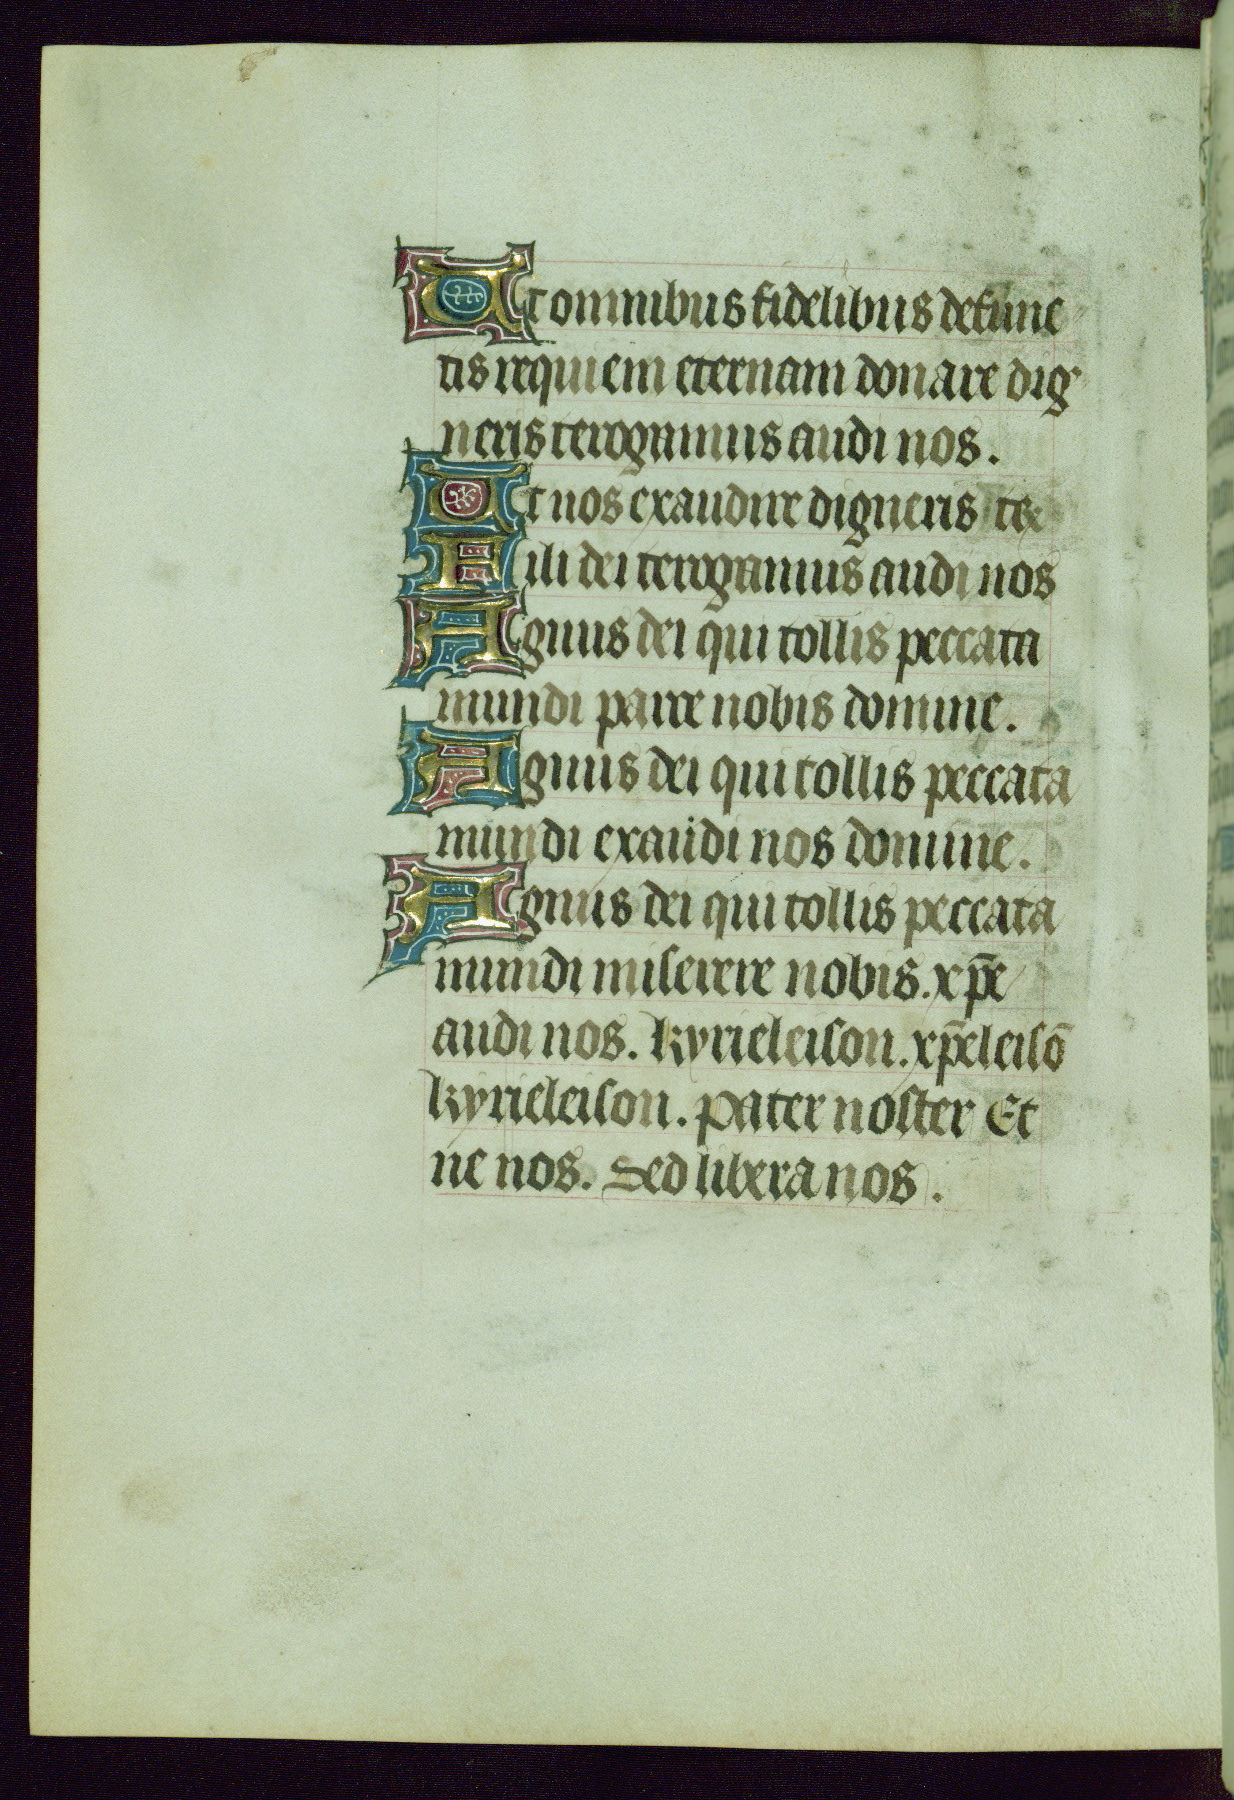 Ut omnibus fidelibus defunc
tis requiem eternam donare dig
neris te rogamus audi nos.
Ut nos exaudire digneris te
Fili dei te rogamus audi nos
Agnus dei qui tollis peccata
mundi parce nobis domine.
Agnus dei qui tollis peccata
mundi exaudi nos domine.
Agnus dei qui tollis peccata
mundi miserere nobis. xp̄e
audi nos. kyrieleison. xp̄eleisō
kyrieleison. Pater noster Et
ne nos. Sed libera nos.